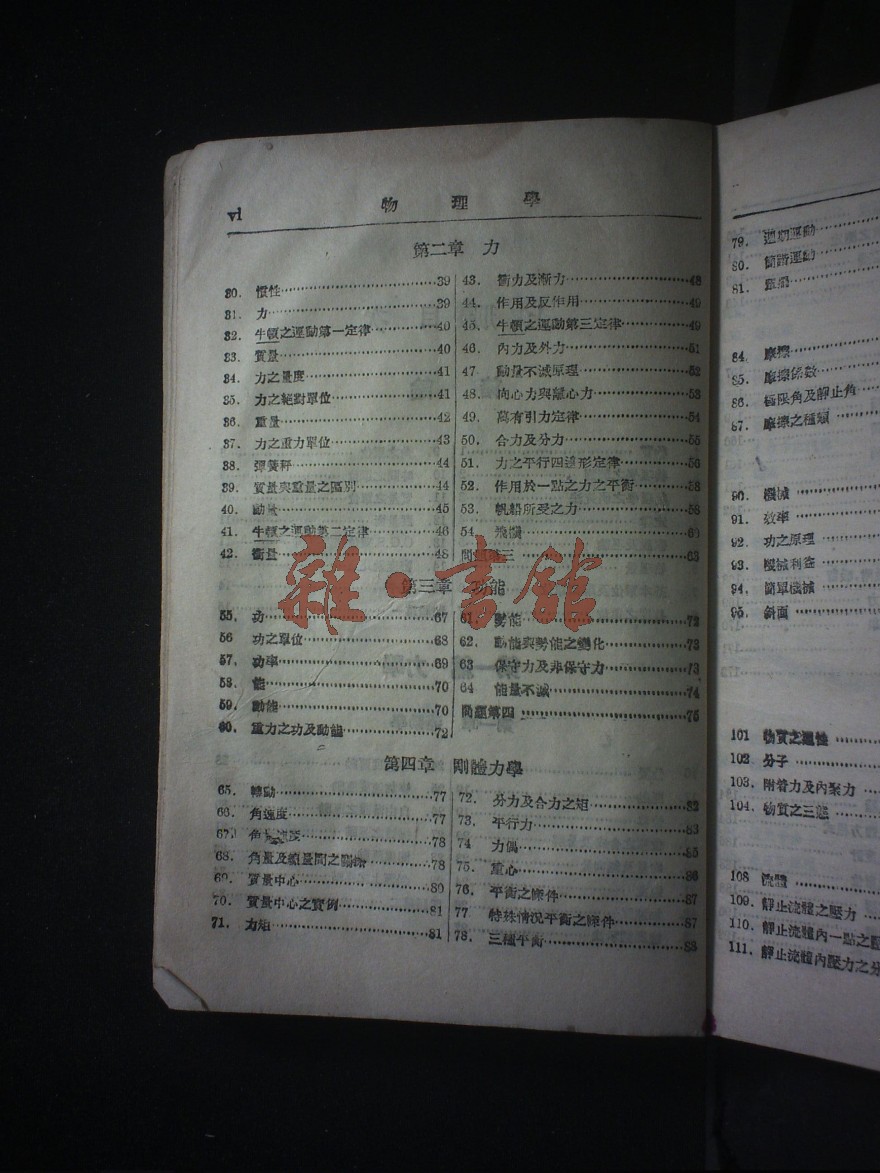 vi
物理學
第二章 力
30. 慣性……39
31. 力……39
32. 牛頓之運動第一定律……40
33. 質量……40
34. 力之量度……41
35. 力之絕對單位……41
36. 重量……42
37. 力之重力單位……43
38. 彈簧秤……44
39. 質量與重量之區別……44
40. 動量……45
41. 牛頓之運動第二定律……46
42. 衝量……48
43. 衝力及漸力……48
44. 作用及反作用……49
45. 牛頓之運動第三定律……49
46. 內力及外力……51
47 動量不滅原理……52
48. 向心力與離心力……53
49. 萬有引力定律……54
50. 合力及分力……55
51. 力之平行四邊形定律……56
52. 作用於一點之力之平衡……58
53. 帆船所受之力……58
54. 飛機……60
問題 三……63
第三章 功能
55. 功……67
56 功之單位……68
57. 功率……69
58. 能……70
59. 動能……70
60. 重力之功及動能……72
61. 勢能……72
62. 動能與勢能之變化……73
63 保守力及非保守力……73
64 能量不滅……74
問題第四……75
第四章 剛體力學
65. 轉動……77
66. 角速度……77
67. 角 速度……78
68. 角量及線量間之關係……78
69. 質量中心……80
70. 質量中心之實例……81
71. 力矩……81
72. 分力及合力之矩……82
73. 平行力……83
74 力偶……85
75. 重心……86
76. 平衡之條件……87
77 特殊情況平衡之條件……87
78. 三種平衡……88
79. 週期運動
80. 簡諧運動
81.
84. 摩擦
85. 摩擦係數
86. 極限角及靜止角
87. 摩擦之種類
90. 機械
91. 效率
92. 功之原理
93. 機械利益
94. 簡單機械
95. 斜面
101 物質之通性
102 分子
103. 附着力及內聚力
104. 物質之三態
108 流體
109. 靜止流體之壓力
110. 靜止流體內一點之壓
111. 靜止流體內壓力之分
雜·書館